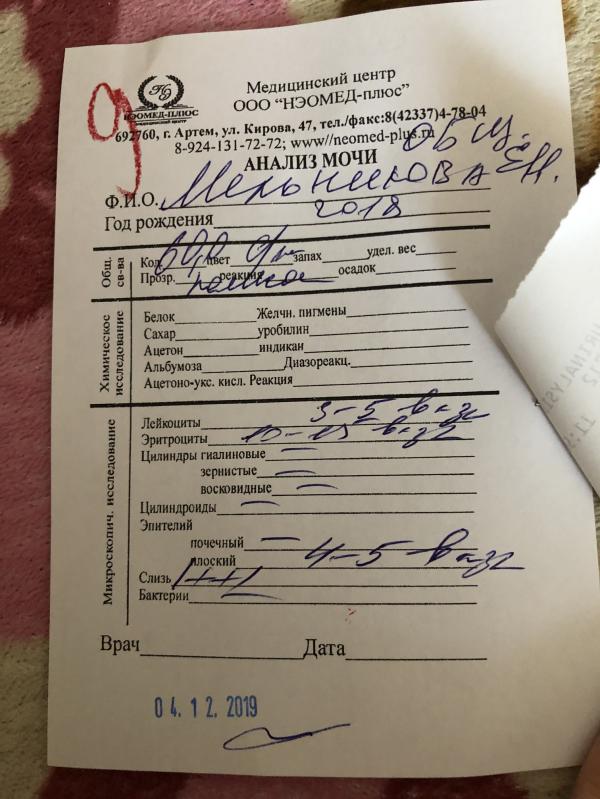 д
НЭОМЕД-ПЛЮС
Медицинский центр
ООО "НЭОМЕД-плюс"
692760, г. Артем, ул. Кирова, 47, тел./факс:8(42337)4-78-04
8-924-131-72-72; www//neomed-plus.ru
АНАЛИЗ МОЧИ общ.
Ф.И.О. Мельникова Е.Н.
Год рождения 2018
Общ. св-ва
Кол. цвет запах удел. вес
Прозр. полная реакция осадок
Химическое исследование
Белок Желчн. пигмены
Сахар уробилин
Ацетон индикан
Альбумоза Диазореакц.
Ацетоно-укс. кисл. Реакция
Микроскопич. исследование
Лейкоциты 3-5 в п/зр
Эритроциты 10-15 в п/зр
Цилиндры гиалиновые —
зернистые —
восковидные —
Цилиндроиды —
Эпителий
почечный —
плоский 4-5 в п/зр
Слизь /++/
Бактерии —
Врач Дата
04.12.2019
URINALYSIS